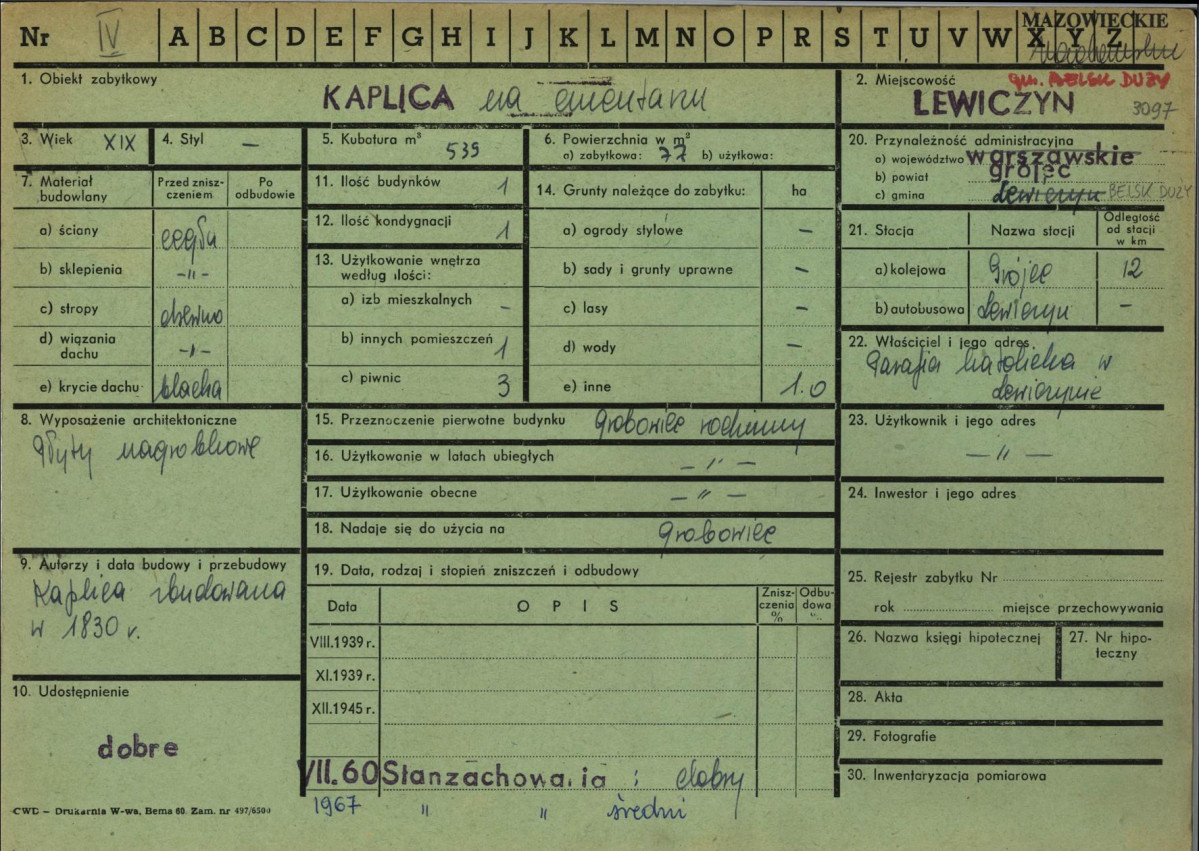 Nr IV A B C D E F G H I J K L M N O P R S T U V W X Y Z
MAZOWIECKIE
1. Obiekt zabytkowy
KAPLICA na cmentarzu
2. Miejscowość gm. BELSK DUŻY
LEWICZYN 3097
3. Wiek XIX
4. Styl —
5. Kubatura m³ 539
6. Powierzchnia w m²
a) zabytkowa: 77 b) użytkowa:
7. Materiał budowlany
Przed zniszczeniem
Po odbudowie
a) ściany cegła
b) sklepienia -"-
c) stropy drewno
d) wiązania dachu -"-
e) krycie dachu blacha
8. Wyposażenie architektoniczne
płyty nagrobkowe
9. Autorzy i data budowy i przebudowy
Kaplica zbudowana
w 1830 r.
10. Udostępnienie
dobre
11. Ilość budynków 1
12. Ilość kondygnacji 1
13. Użytkowanie wnętrza
według ilości:
a) izb mieszkalnych -
b) innych pomieszczeń 1
c) piwnic 3
14. Grunty należące do zabytku: ha
a) ogrody stylowe —
b) sady i grunty uprawne —
c) lasy —
d) wody —
e) inne 1.0
15. Przeznaczenie pierwotne budynku grobowiec rodzinny
16. Użytkowanie w latach ubiegłych — " —
17. Użytkowanie obecne — " —
18. Nadaje się do użycia na grobowiec
19. Data, rodzaj i stopień zniszczeń i odbudowy
Data
OPIS
Zniszczenia %
Odbudowa %
VIII.1939 r.
XI.1939 r.
XII.1945 r.
VII.60 Stan zachowania: dobry
1967 " " średni
20. Przynależność administracyjna
a) województwo warszawskie
b) powiat grójec
c) gmina Lewiczyn BELSK DUŻY
21. Stacja
Nazwa stacji
Odległość od stacji w km
a) kolejowa Grójec 12
b) autobusowa Lewiczyn —
22. Właściciel i jego adres
Parafia katolicka w
Lewiczynie
23. Użytkownik i jego adres
— " —
24. Inwestor i jego adres
25. Rejestr zabytku Nr
rok miejsce przechowywania
26. Nazwa księgi hipotecznej
27. Nr hipoteczny
28. Akta
29. Fotografie
30. Inwentaryzacja pomiarowa
CWD – Drukarnia W-wa, Bema 60. Zam. nr 497/6500